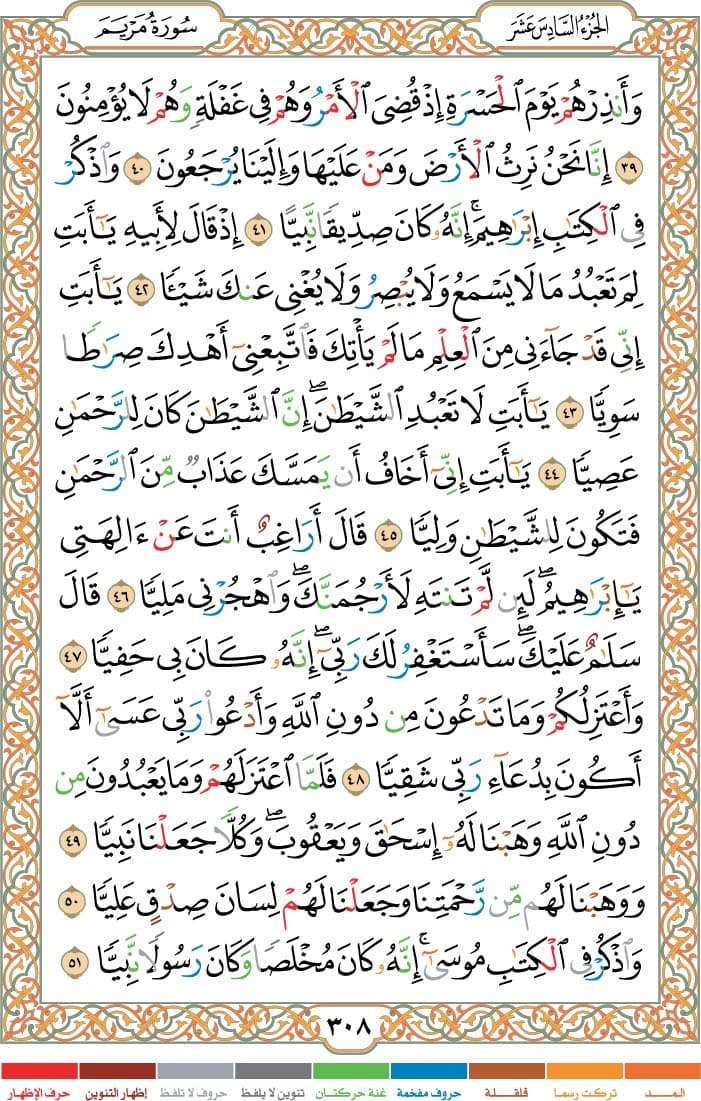 الجزء السادس عشر
سورة مريم
وَأَنذِرْهُمْ يَوْمَ ٱلْحَسْرَةِ إِذْ قُضِىَ ٱلْأَمْرُ وَهُمْ فِى غَفْلَةٍ وَهُمْ لَا يُؤْمِنُونَ
٣٩ إِنَّا نَحْنُ نَرِثُ ٱلْأَرْضَ وَمَنْ عَلَيْهَا وَإِلَيْنَا يُرْجَعُونَ ٤٠ وَٱذْكُرْ
فِى ٱلْكِتَٰبِ إِبْرَٰهِيمَ ۚ إِنَّهُۥ كَانَ صِدِّيقًا نَّبِيًّا ٤١ إِذْ قَالَ لِأَبِيهِ يَٰٓأَبَتِ
لِمَ تَعْبُدُ مَا لَا يَسْمَعُ وَلَا يُبْصِرُ وَلَا يُغْنِى عَنكَ شَيْـًٔا ٤٢ يَٰٓأَبَتِ
إِنِّى قَدْ جَآءَنِى مِنَ ٱلْعِلْمِ مَا لَمْ يَأْتِكَ فَٱتَّبِعْنِىٓ أَهْدِكَ صِرَٰطًا
سَوِيًّا ٤٣ يَٰٓأَبَتِ لَا تَعْبُدِ ٱلشَّيْطَٰنَ ۖ إِنَّ ٱلشَّيْطَٰنَ كَانَ لِلرَّحْمَٰنِ
عَصِيًّا ٤٤ يَٰٓأَبَتِ إِنِّىٓ أَخَافُ أَن يَمَسَّكَ عَذَابٌ مِّنَ ٱلرَّحْمَٰنِ
فَتَكُونَ لِلشَّيْطَٰنِ وَلِيًّا ٤٥ قَالَ أَرَاغِبٌ أَنتَ عَنْ ءَالِهَتِى
يَٰٓإِبْرَٰهِيمُ ۖ لَئِن لَّمْ تَنتَهِ لَأَرْجُمَنَّكَ ۖ وَٱهْجُرْنِى مَلِيًّا ٤٦ قَالَ
سَلَٰمٌ عَلَيْكَ ۖ سَأَسْتَغْفِرُ لَكَ رَبِّىٓ ۖ إِنَّهُۥ كَانَ بِى حَفِيًّا ٤٧
وَأَعْتَزِلُكُمْ وَمَا تَدْعُونَ مِن دُونِ ٱللَّهِ وَأَدْعُوا۟ رَبِّى عَسَىٰٓ أَلَّآ
أَكُونَ بِدُعَآءِ رَبِّى شَقِيًّا ٤٨ فَلَمَّا ٱعْتَزَلَهُمْ وَمَا يَعْبُدُونَ مِن
دُونِ ٱللَّهِ وَهَبْنَا لَهُۥٓ إِسْحَٰقَ وَيَعْقُوبَ ۖ وَكُلًّا جَعَلْنَا نَبِيًّا ٤٩
وَوَهَبْنَا لَهُم مِّن رَّحْمَتِنَا وَجَعَلْنَا لَهُمْ لِسَانَ صِدْقٍ عَلِيًّا ٥٠
وَٱذْكُرْ فِى ٱلْكِتَٰبِ مُوسَىٰٓ ۚ إِنَّهُۥ كَانَ مُخْلَصًا وَكَانَ رَسُولًا نَّبِيًّا ٥١
٣٠٨
المــد تركت رسما قلقلة حروف مفخمة غنة حركتان تنوين لا يلفظ حروف لا تلفظ إظهار التنوين حرف الإظهار